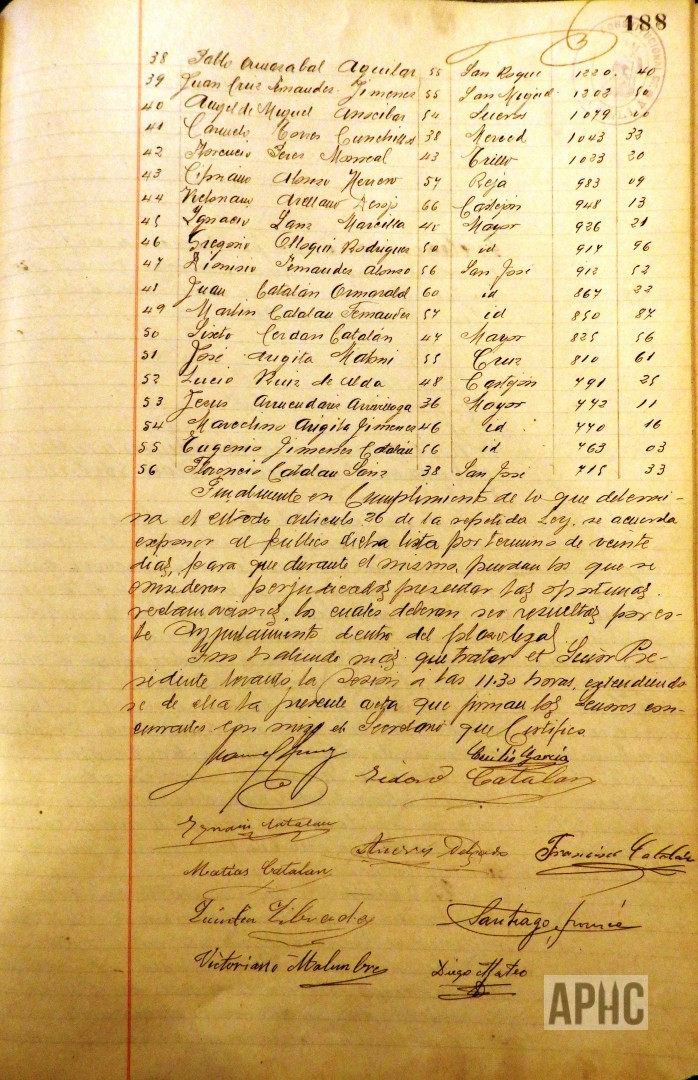 188
38 Pablo Omarabal Aguilar 55 San Roque 1220 40
39 Juan Cruz Fernandez Jimenez 55 San Miguel 1202 50
40 Angel de Miguel 54 1079
41 Carmelo Torres Cunchillos 38 Merced 1043 33
42 Florencio Perez Monreal 43 Trillo 1023 20
43 Cipriano Alonso Herrero 54 Reja 983 09
44 Victoriano Arellano 66 Castejón 948 13
45 Ygnacio Sanz Marcilla 40 Mayor 926 21
46 Gregorio Rodriguez 50 id 914 96
47 Dionisio Fernandez Alonso 56 San José 912 52
48 Juan Catalán 60 id 867 22
49 Martin Catalan Fernandez 54 id 850 87
50 Sixto Cerdan Catalán 44 Mayor 825 56
51 José Angita 55 Cruz 810 61
52 Lucio Ruiz de Alda 48 Castejón 791 25
53 Jesus Armendariz 36 Mayor 772 11
54 Marcelino Angita Jimenez 46 id 770 16
55 Eugenio Jimenez Catalán 56 id 763 03
56 Florencio Catalan Sanz 38 San José 715 33
Finalmente en cumplimiento de lo que determi-
na el citado articulo 26 de la repetida Ley, se acuerda
exponer al publico dicha lista por termino de veinte
dias, para que durante el mismo, puedan los que se
consideren perjudicados presentar las oportunas
reclamaciones, los cuales deberan ser resueltas por es-
te Ayuntamiento dentro del plazo legal.
Y no habiendo mas que tratar el Señor Pre-
sidente levantó la sesión a las 11:30 horas, extendiendo
se de ella la presente acta que firman los Señores con-
currentes con migo el Secretario que Certifico
Emilio García
Isidoro Catalan
Ygnacio Catalan
Andres Delgado Francisco Catalan
Matias Catalan
Quintin Librada Santiago
Victoriano Malumbre Diego Mateo
APHC